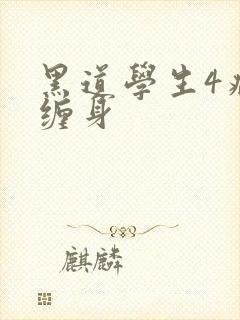 黑道學生4
缠身
麒麟